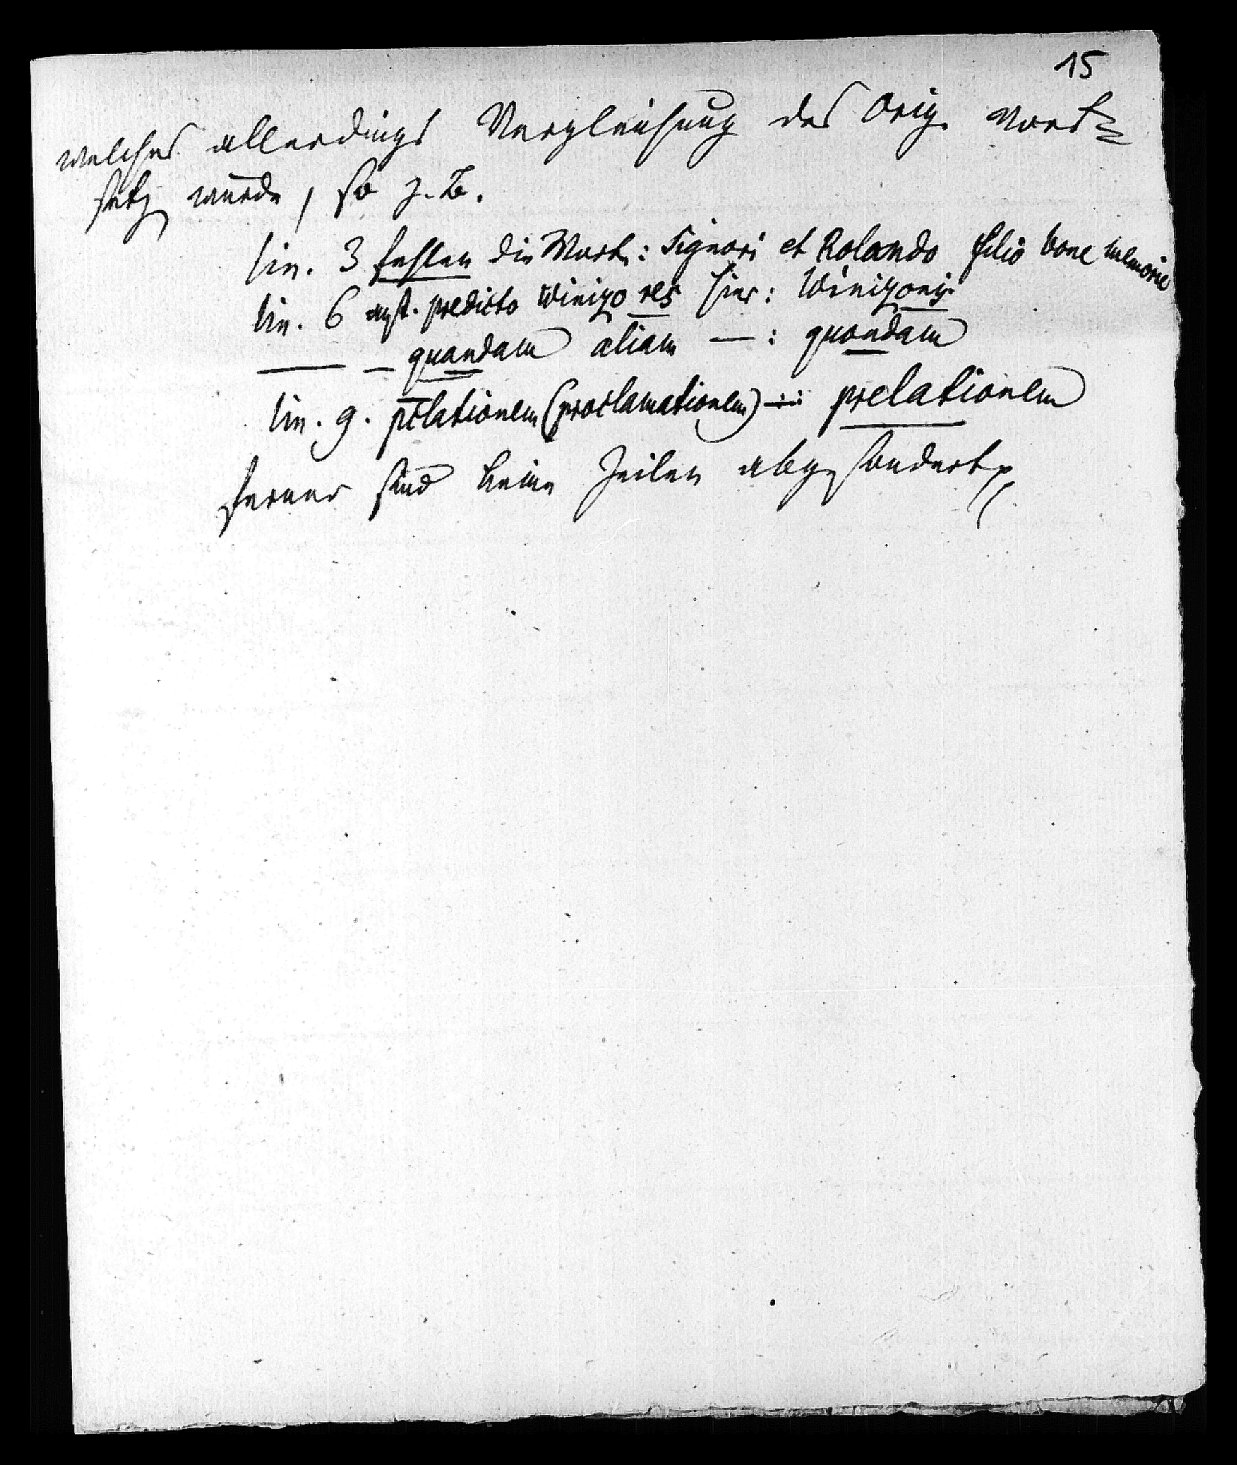 15
welches allerdings Vergleichung des Orig. voraus=
setzen würde, so z. B.
lin. 3 fehlen die Worte: Signori et Rolando filio bone memorie
lin. 6 anst. predicto Winizo res hier: Winizonis
— — quandam aliam — : quondam
lin. 9. pclationem (proclamationem) — : prelationem
ferner sind keine Zeilen abgesondert